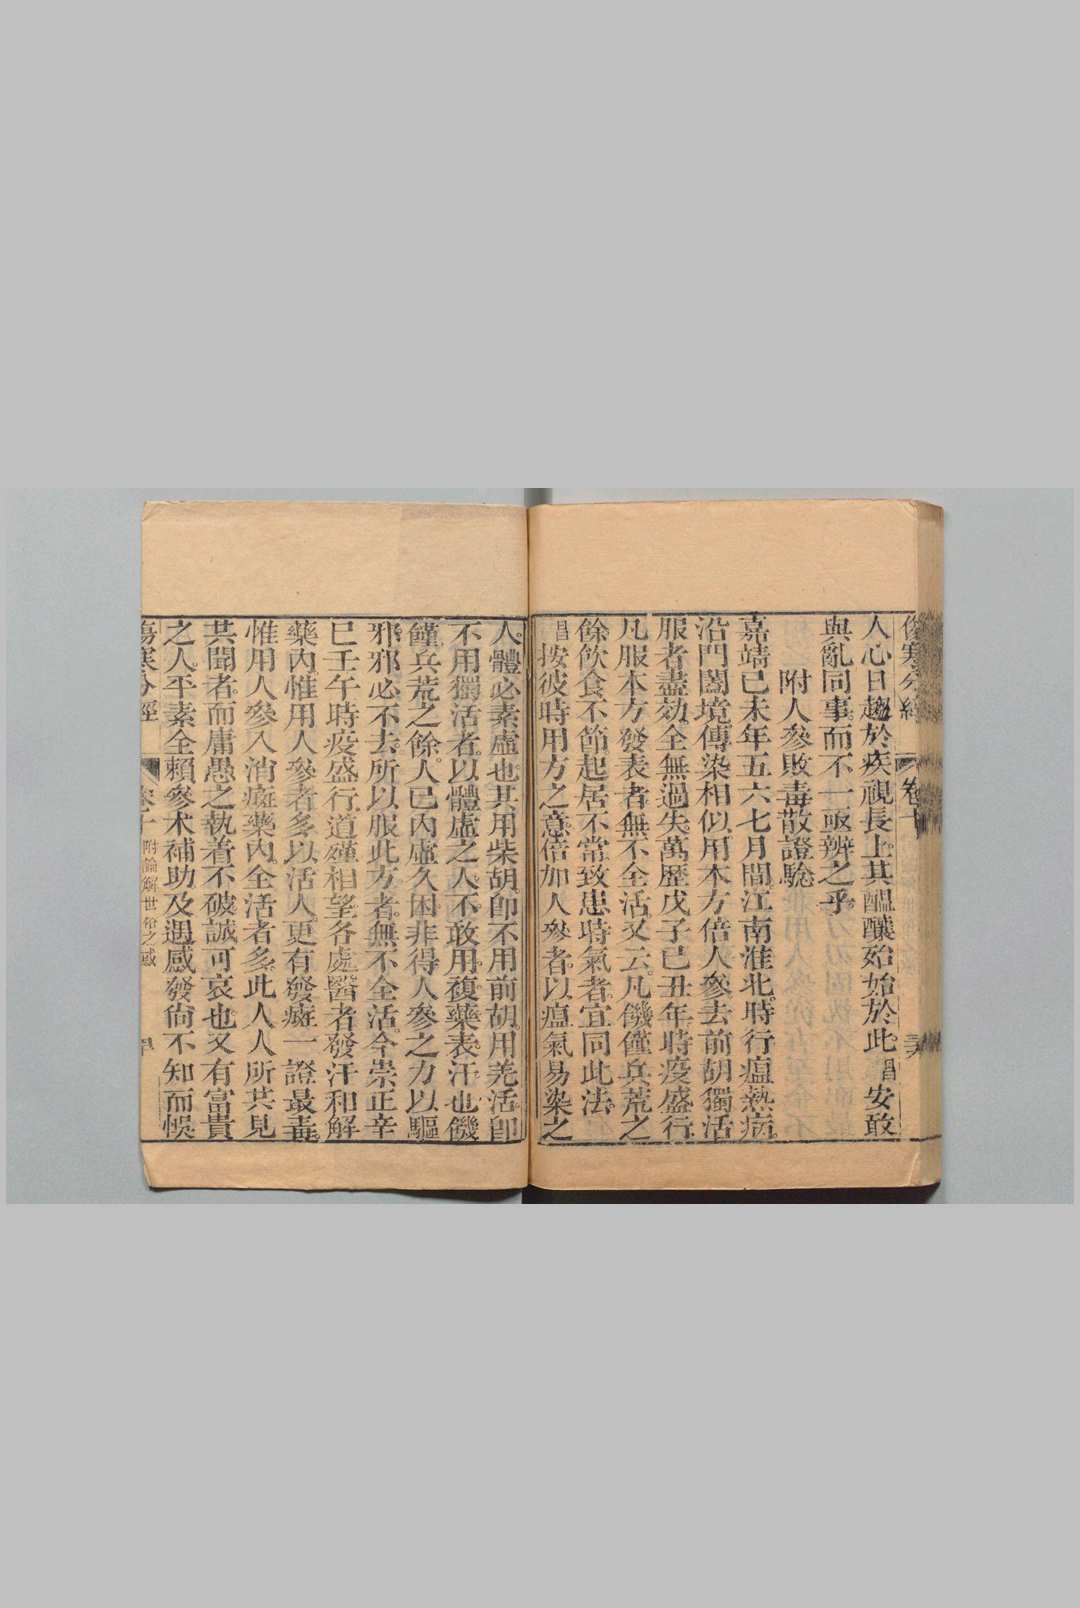 傷寒分經
卷十
人心日趨於疾視長上其醞釀始始於此昌安敢
與亂同事而不一亟辨之乎
附人參敗毒散證驗
嘉靖己未年五六七月間江南淮北時行瘟熱病
沿門闔境傳染相似用本方倍人參去前胡獨活
服者盡効全無過失萬歷戊子己丑年時疫盛行
凡服本方發表者無不全活又云凡饑饉兵荒之
餘飲食不節起居不常致患時氣者宜同此法
昌按彼時用方之意倍加人參者以瘟氣易染之
人體必素虛也其用柴胡卽不用前胡用羌活卽
不用獨活者以體虛之人不敢用複藥表汗也饑
饉兵荒之餘人已內虛久困非得人參之力以驅
邪邪必不去所以服此方者無不全活今崇正辛
巳壬午時疫盛行道殣相望各處醫者發汗和解
藥內惟用人參者多以活人更有發痲一證最毒
惟用人參入消痲藥內全活者多此人人所共見
共聞者而庸愚之執着不破誠可哀也又有富貴
之人平素全賴參朮補助及遇感發尙不知而悞
傷寒分經
附論解世俗之惑